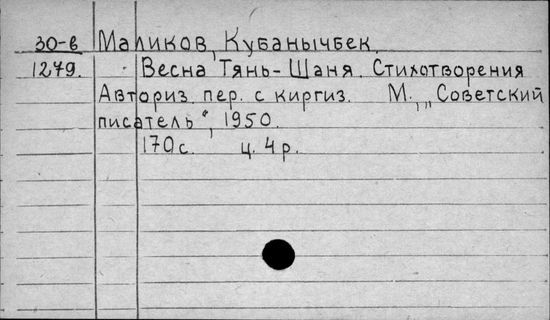 30-в Маликов, Кубанычбек.
1279. Весна Тянь-Шаня. Стихотворения
Авториз. пер. с киргиз. М., „Советский
писатель“, 1950.
170с. ц. 4р.